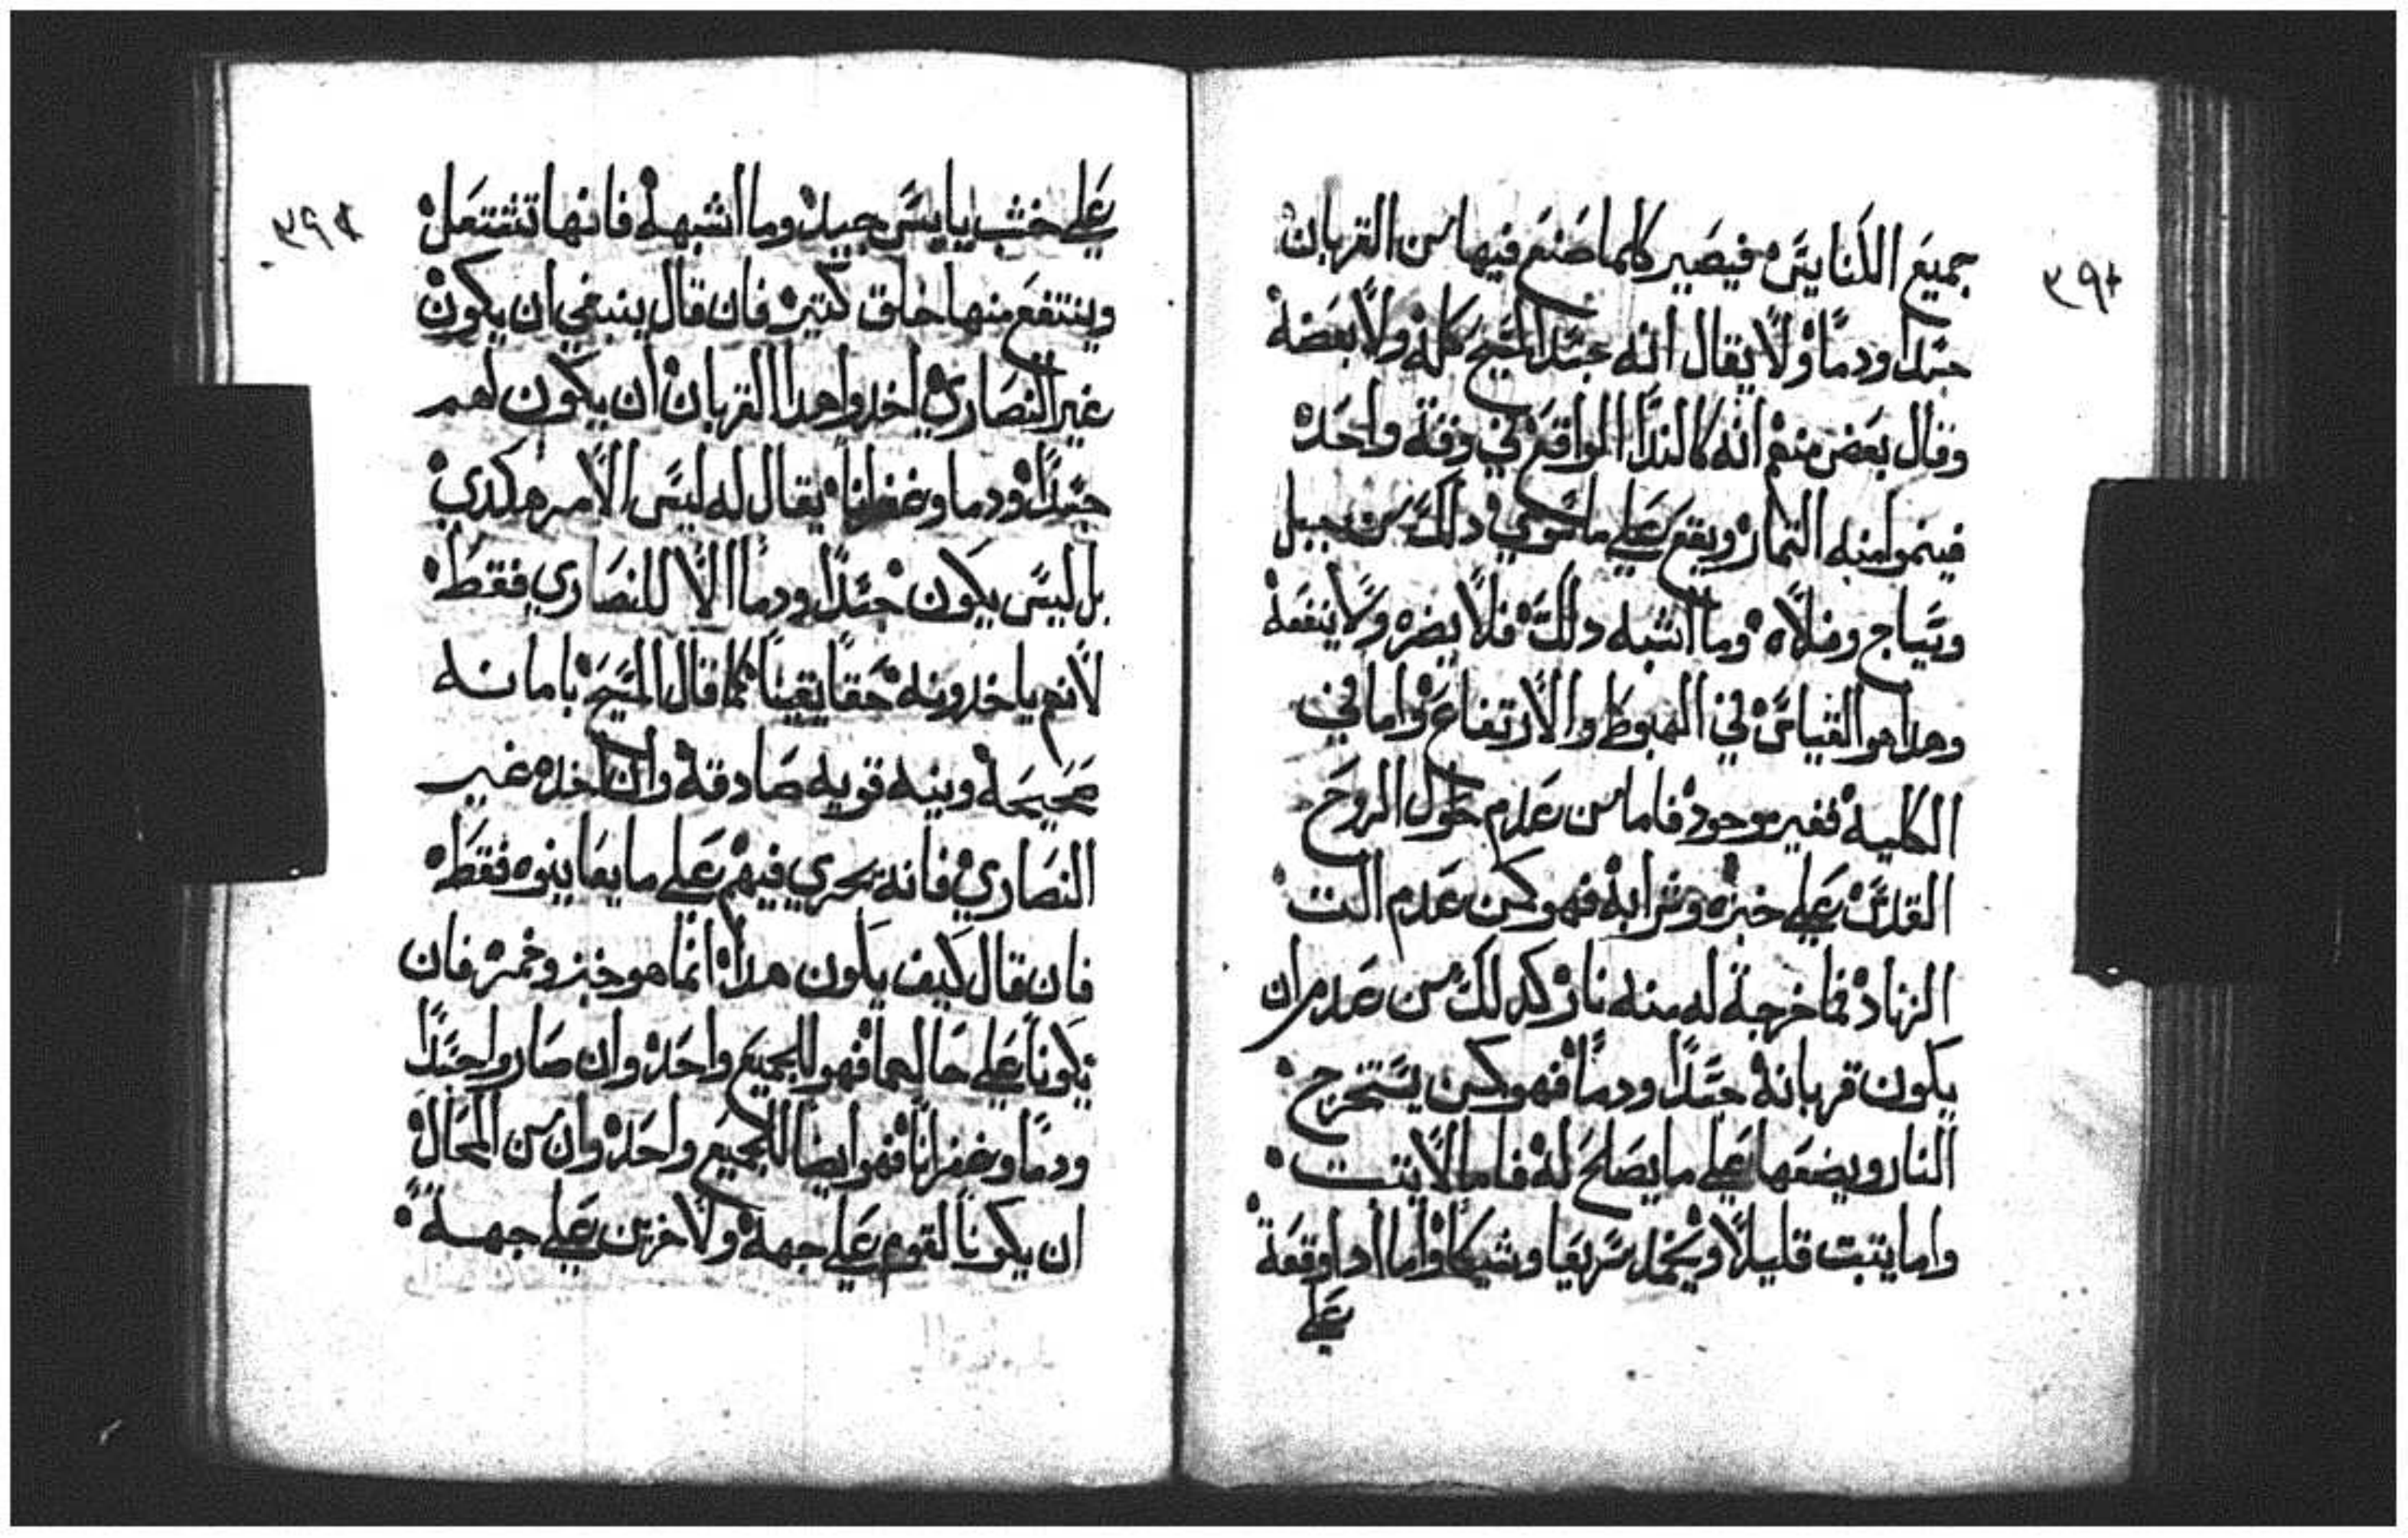 ٣٩٣
جميع الكنايس فيصير كلما صنع فيها من القربان
جسدا ودما ولا يقال انه جسد المسيح كله ولا بعضه
وقال بعض منهم انه كالندا الواقع في وقة واحده
فينموا منه التمار ويقع علي ما سوي دلك من جبل
وسياج وفلاه وما اشبه دلك فلا يضره ولا ينفعه
وهدا هو القياس في الهبوط والارتفاع واما في
الكليه فغير موجود فاما من عدم حلول الروح
القدس علي خبزه وشرابه فهو كمن عدم الت
الزناد فما خرجة له منه نار كدلك من عدم ان
يكون قربانه جسدا ودما فهو كمن يستخرج
النار ويضعها علي ما يصلح له فاما لا يتبت
واما يتبت قليلا ويخمد سريعا وشيكا واما ادا وقعة
علي
٣٩٤
علي خشب يابس جيد وما اشبهه فانها تشتعل
وينتفع منها خلق كتير فان قال ينبغي ان يكون
غير النصاري اخدوا هدا القربان ان يكون لهم
جسدا ودما وغفرانا يقال له ليس الامر هكدي
بل ليس يكون جسدا ودما الا للنصاري فقط
لانهم ياخدونه حقا يقينا كما قال المسيح بامانه
صحيحه ونيه قويه صادقه وان اخده غير
النصاري فانه يجري فيهم علي ما يعاينوه فقط
فان قال كيف يكون هدا انما هو خبز وخمر فان
يكونا علي حالهما فهو للجميع واحد وان صاروا جسدا
ودما وغفرانا فهو ايضا للجميع واحد وان من المحال
ان يكونا لقوم علي جهه ولاخرين علي جهه